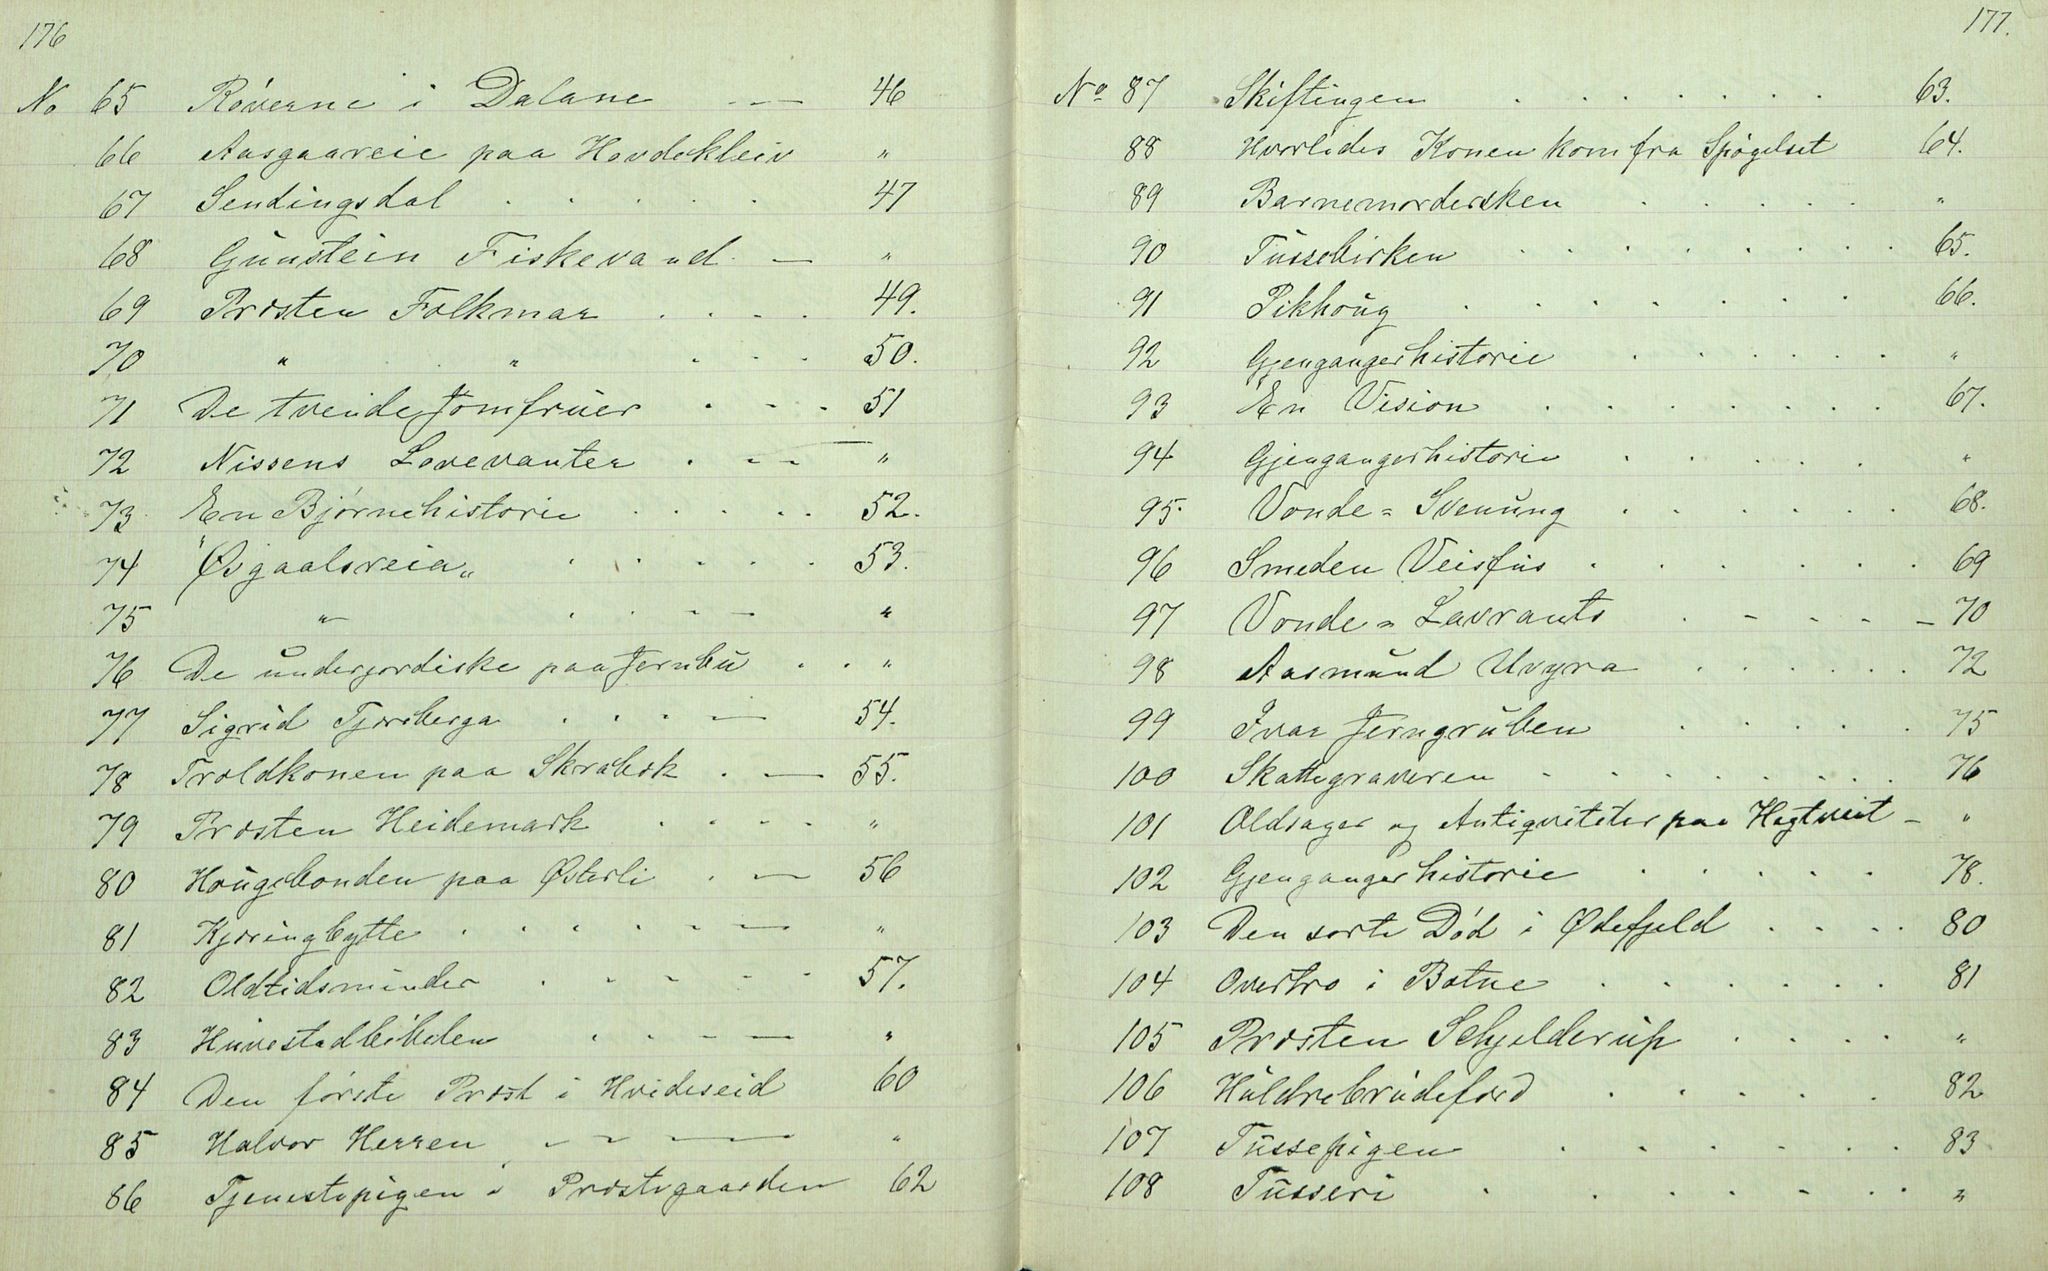 176
No 65 Røverne i Dalane — — 46
66 Aasgaareie paa Hovdekleiv "
67 Sendingsdal . . . . . 47
68 Gunstein Fiskevand. — "
69 Præsten Folkmar . . . . 49.
70 " " . . . 50.
71 De tvende Jomfruer . - . 51
72 Nissens Lovevanter . - - "
73 En Bjørnehistorie . . . . 52.
74 "Øsgaalsreia„ . . . . . 53.
75 " . . - - "
76 De underjordiske paa Jernbu . . "
77 Sigrid Tjørsberga . . . — 54.
78 Troldkonen paa Skrabæk . — 55.
79 Præsten Heidemark . . . . "
80 Hougebonden paa Østerli . — 56
81 Kjæringbytte . . . . - — "
82 Oldtidsminder . . . . . 57.
83 Huvestadbibelen . . - — "
84 Den første Præst i Hvideseid 60
85 Halvor Herren - - — "
86 Tjenestepigen i Præstegaarden 62
177.
No 87 Skiftingen . . . . . . . 63.
88 Hvorledes Konen kom fra Spøgelset 64.
89 Barnemordersken . . . . . "
90 Tussebirken . . . . . . . . 65.
91 Pikhoug . . . . . . . 66.
92 Gjengangerhistorie . . . . . . "
93 En Vision . . . . . . . . 67.
94 Gjengangerhistorie . . . . . "
95. Vonde = Svenung . . . . . . 68.
96 Smeden Veisfus . . . . . . . 69
97 Vonde = Lavrants . - - - - 70
98 Aasmund Uvyra . . . . . . 72
99 Ivar Jerngruben . . . . . 75
100 Skattegraveren . . . . . . . . 76
101 Oldsager og Antiqviteter paa Hegtveit - "
102 Gjengangerhistorie . . . . . 78.
103 Den sorte Død i Ødefjeld . . . . 80
104 Overtro i Botne . . . . . . 81
105 Præsten Schjelderup . . . . "
106 Huldrebrudefærd . . . . . 82
107 Tussepigen . . . . . . 83
108 Tusseri . . . . - . . "